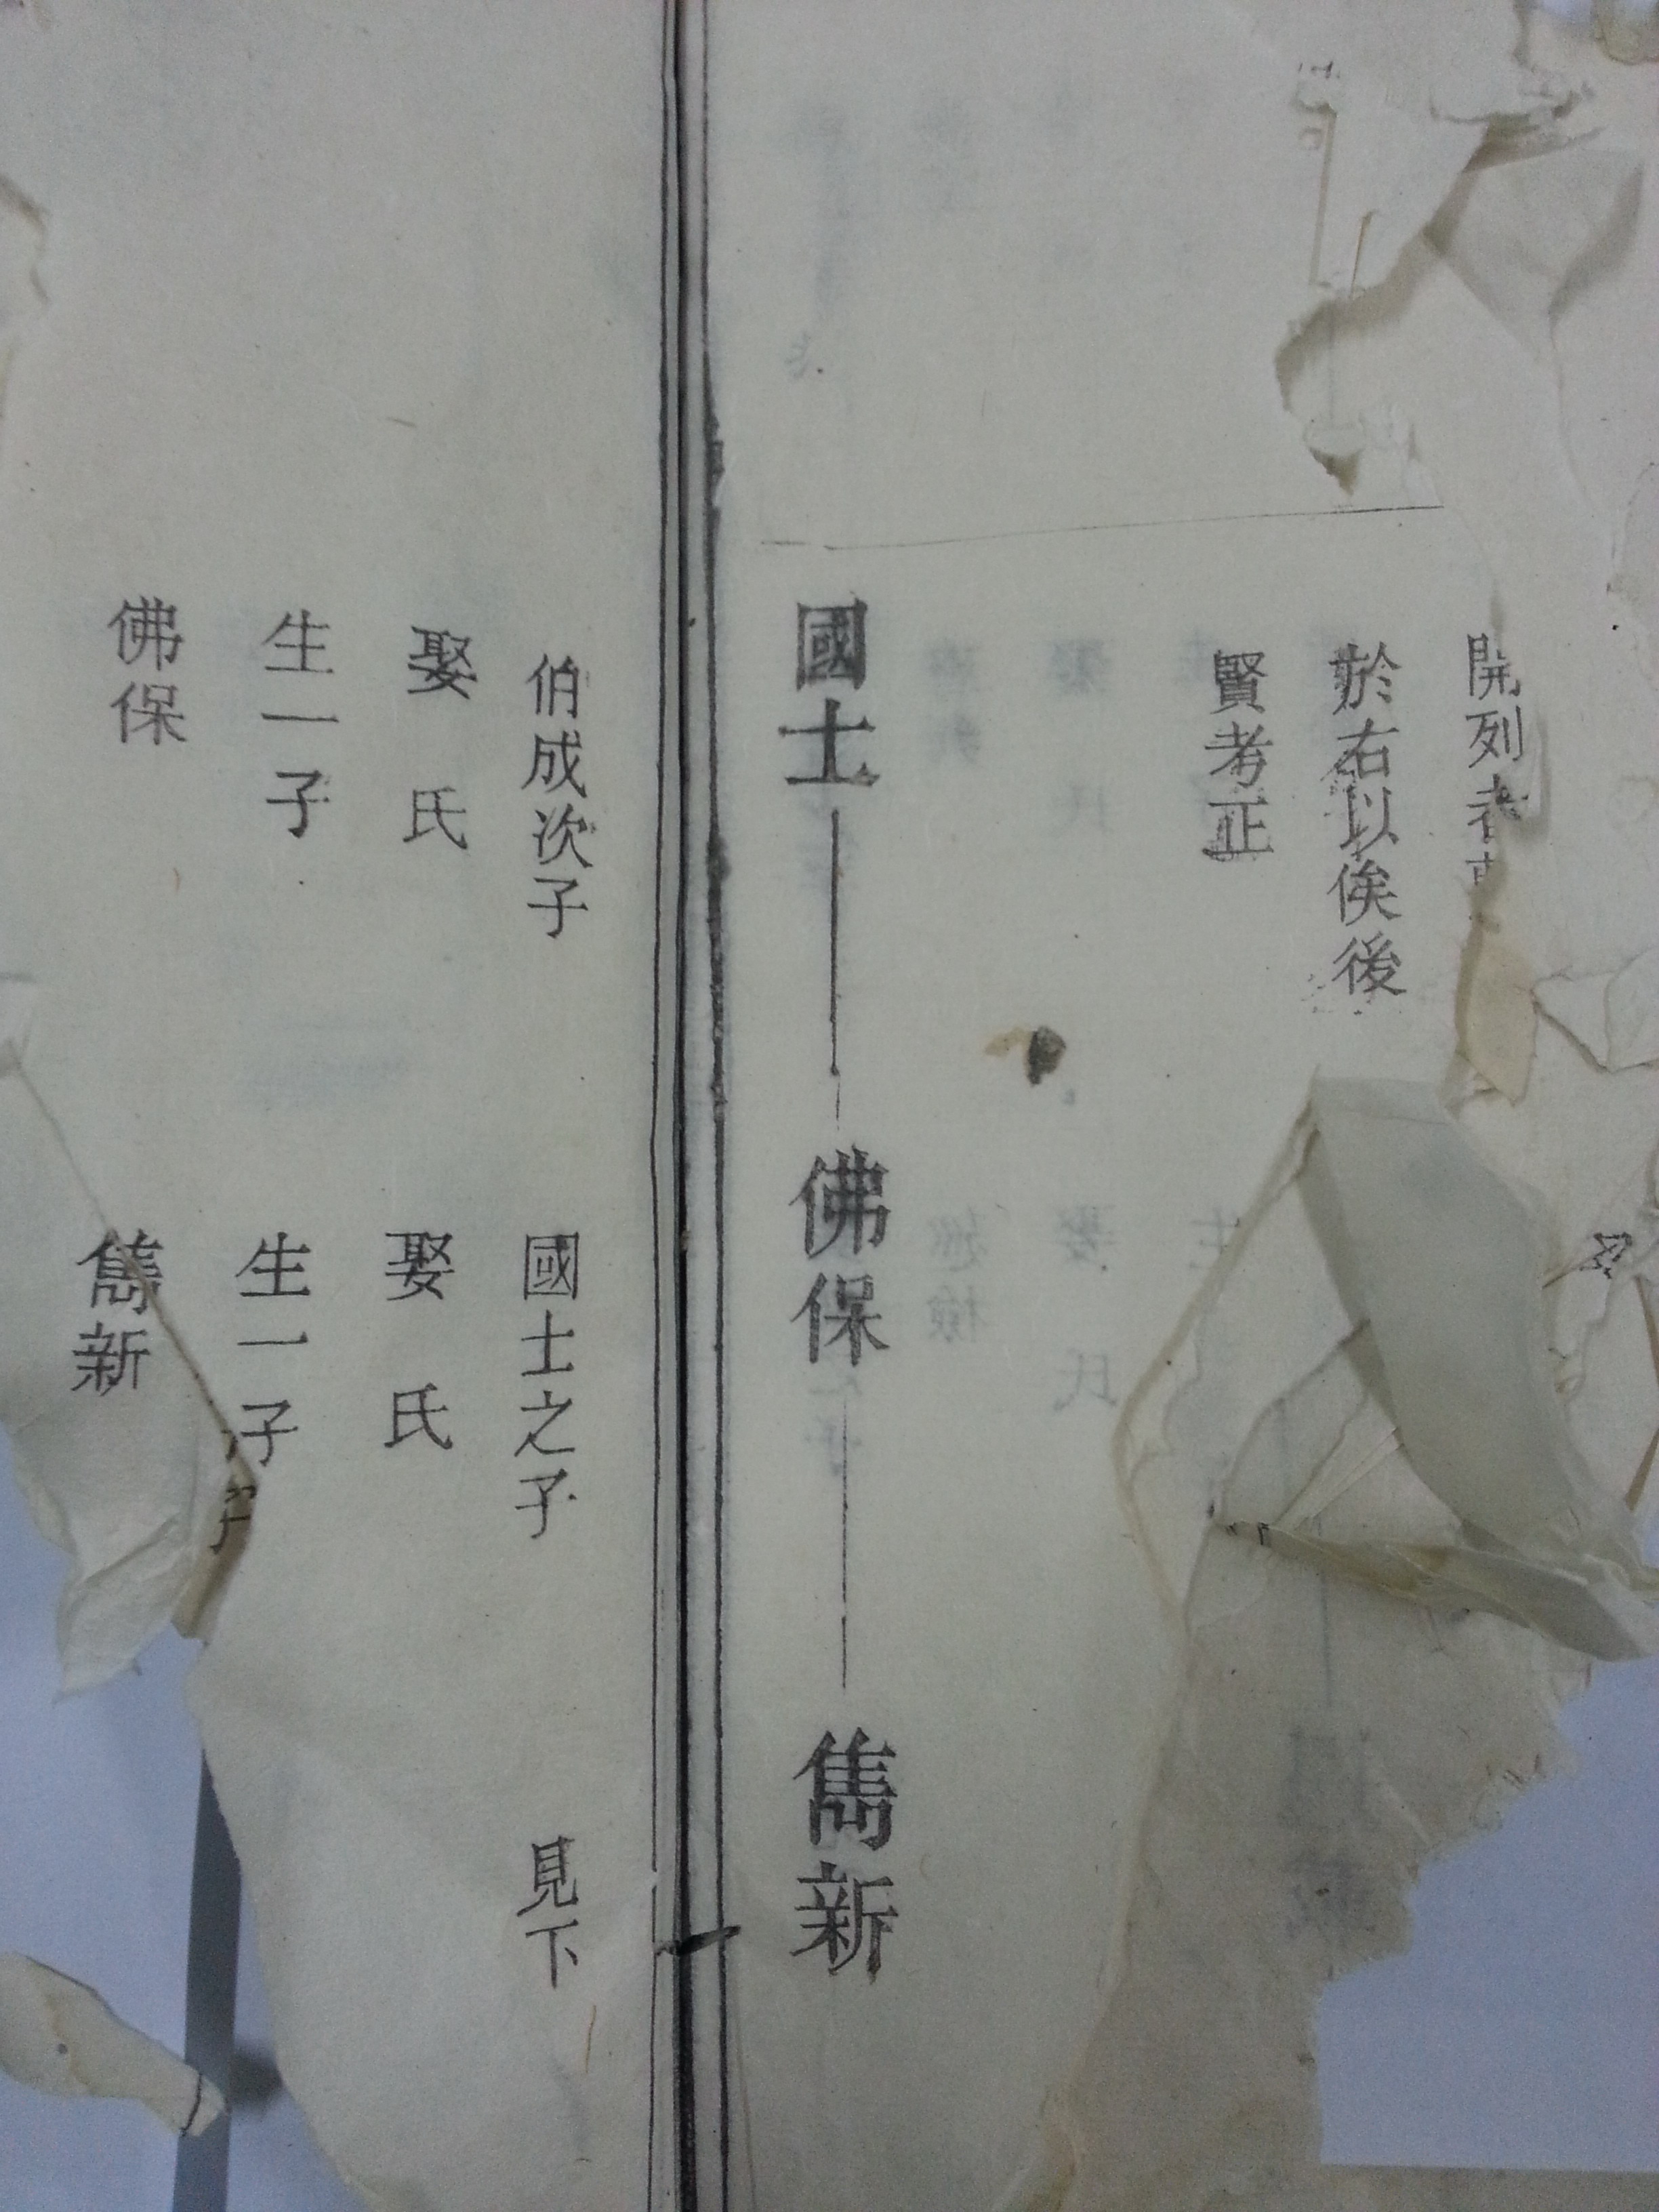 開列
於右以俟後
賢考正
國士
佛保
雋新
伯成次子
娶 氏
生一子
佛保
國士之子
娶 氏
生一子
雋新
見下